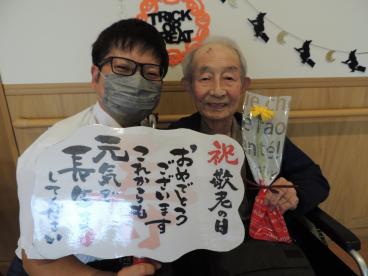 TRICK
OR
TREAT
祝 敬老の日
おめでとう
ございます
これからも
元気で
長生き
してください